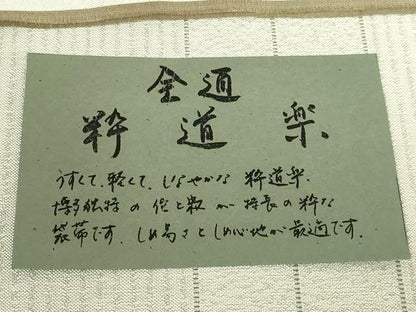 全通
粋道楽
うすくて、軽くて、しなやかな 粋道楽.
博多独特の 後と取 が特長の粋な
袋帯です. しめ易さとしめ心地が最適です.